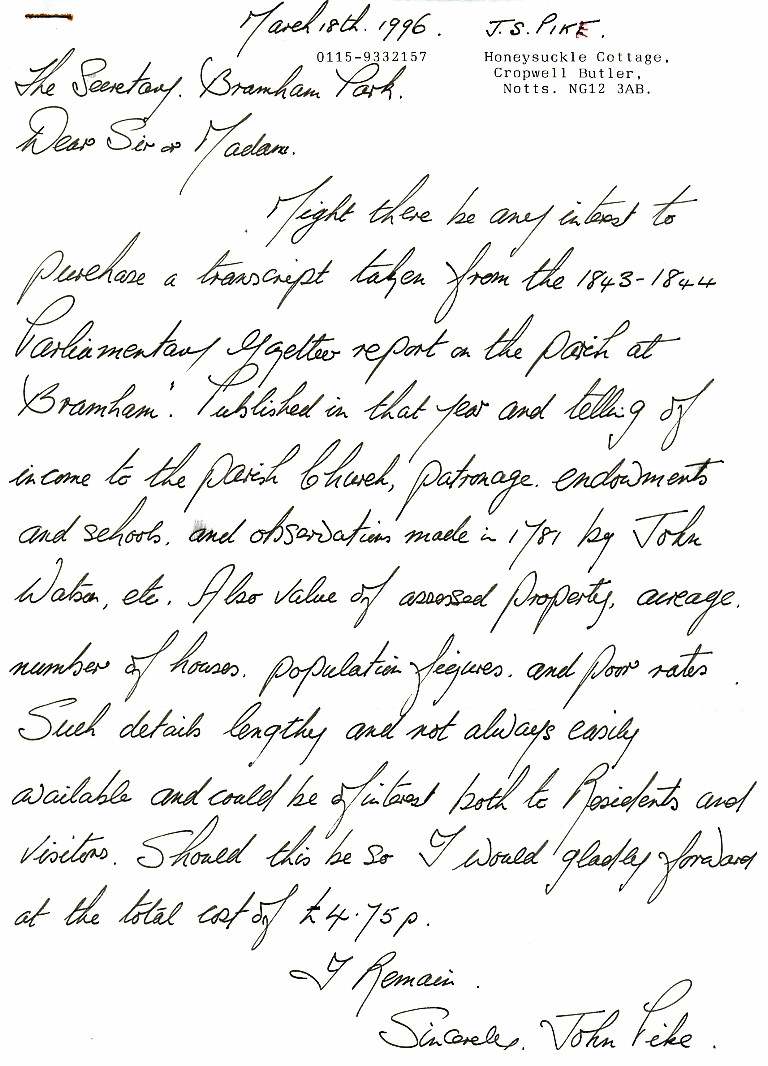 March 18th. 1996. J.S. PIKE.
0115-9332157 Honeysuckle Cottage,
Cropwell Butler,
Notts. NG12 3AB.
The Secretary. Bramham Park.
Dear Sir or Madam.
Might there be any interest to
purchase a transcript taken from the 1843-1844
Parliamentary Gazetteer report on the parish at
"Bramham". Published in that year and telling of
income to the parish Church, patronage. endowments
and schools. and observations made in 1781 by John
Watson, etc. Also value of assessed property, acreage.
number of houses. population figures. and poor rates.
Such details lengthy and not always easily
available and could be of interest both to Residents and
visitors. Should this be so I would gladly forward
at the total cost of £4.75p.
I Remain.
Sincerely. John Pike.